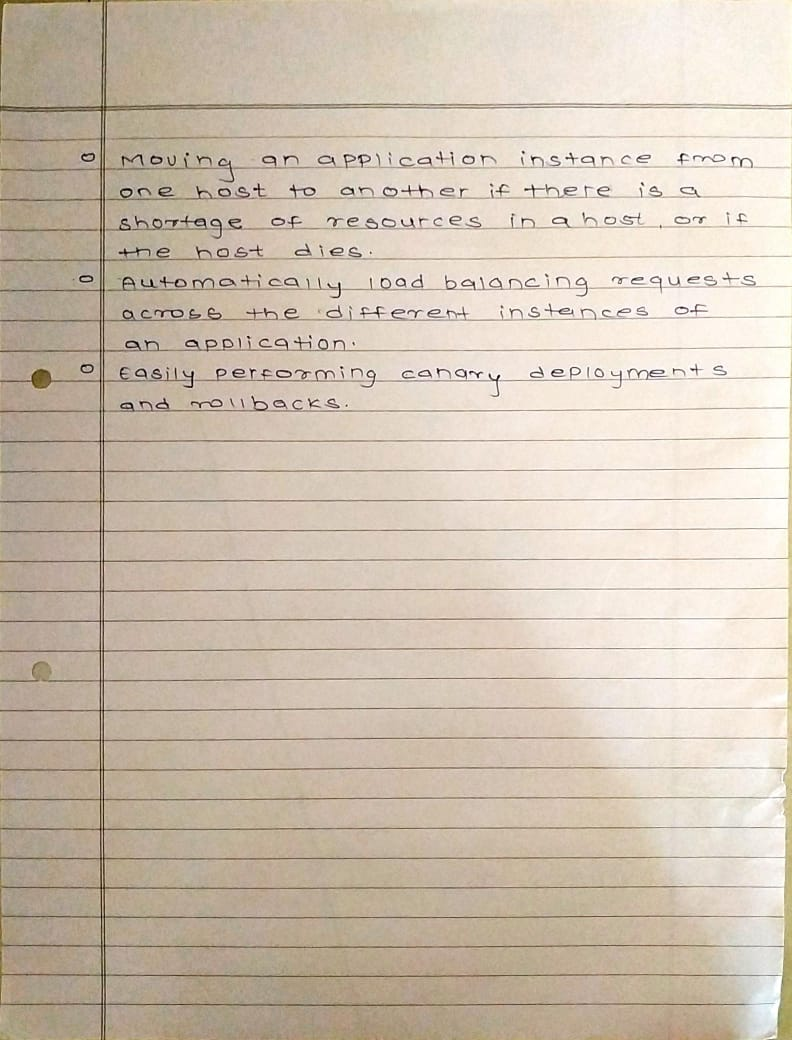 o Moving an application instance from
one host to another if there is a
shortage of resources in a host, or if
the host dies.
o Automatically load balancing requests
across the different instances of
an application.
o Easily performing canary deployments
and rollbacks.